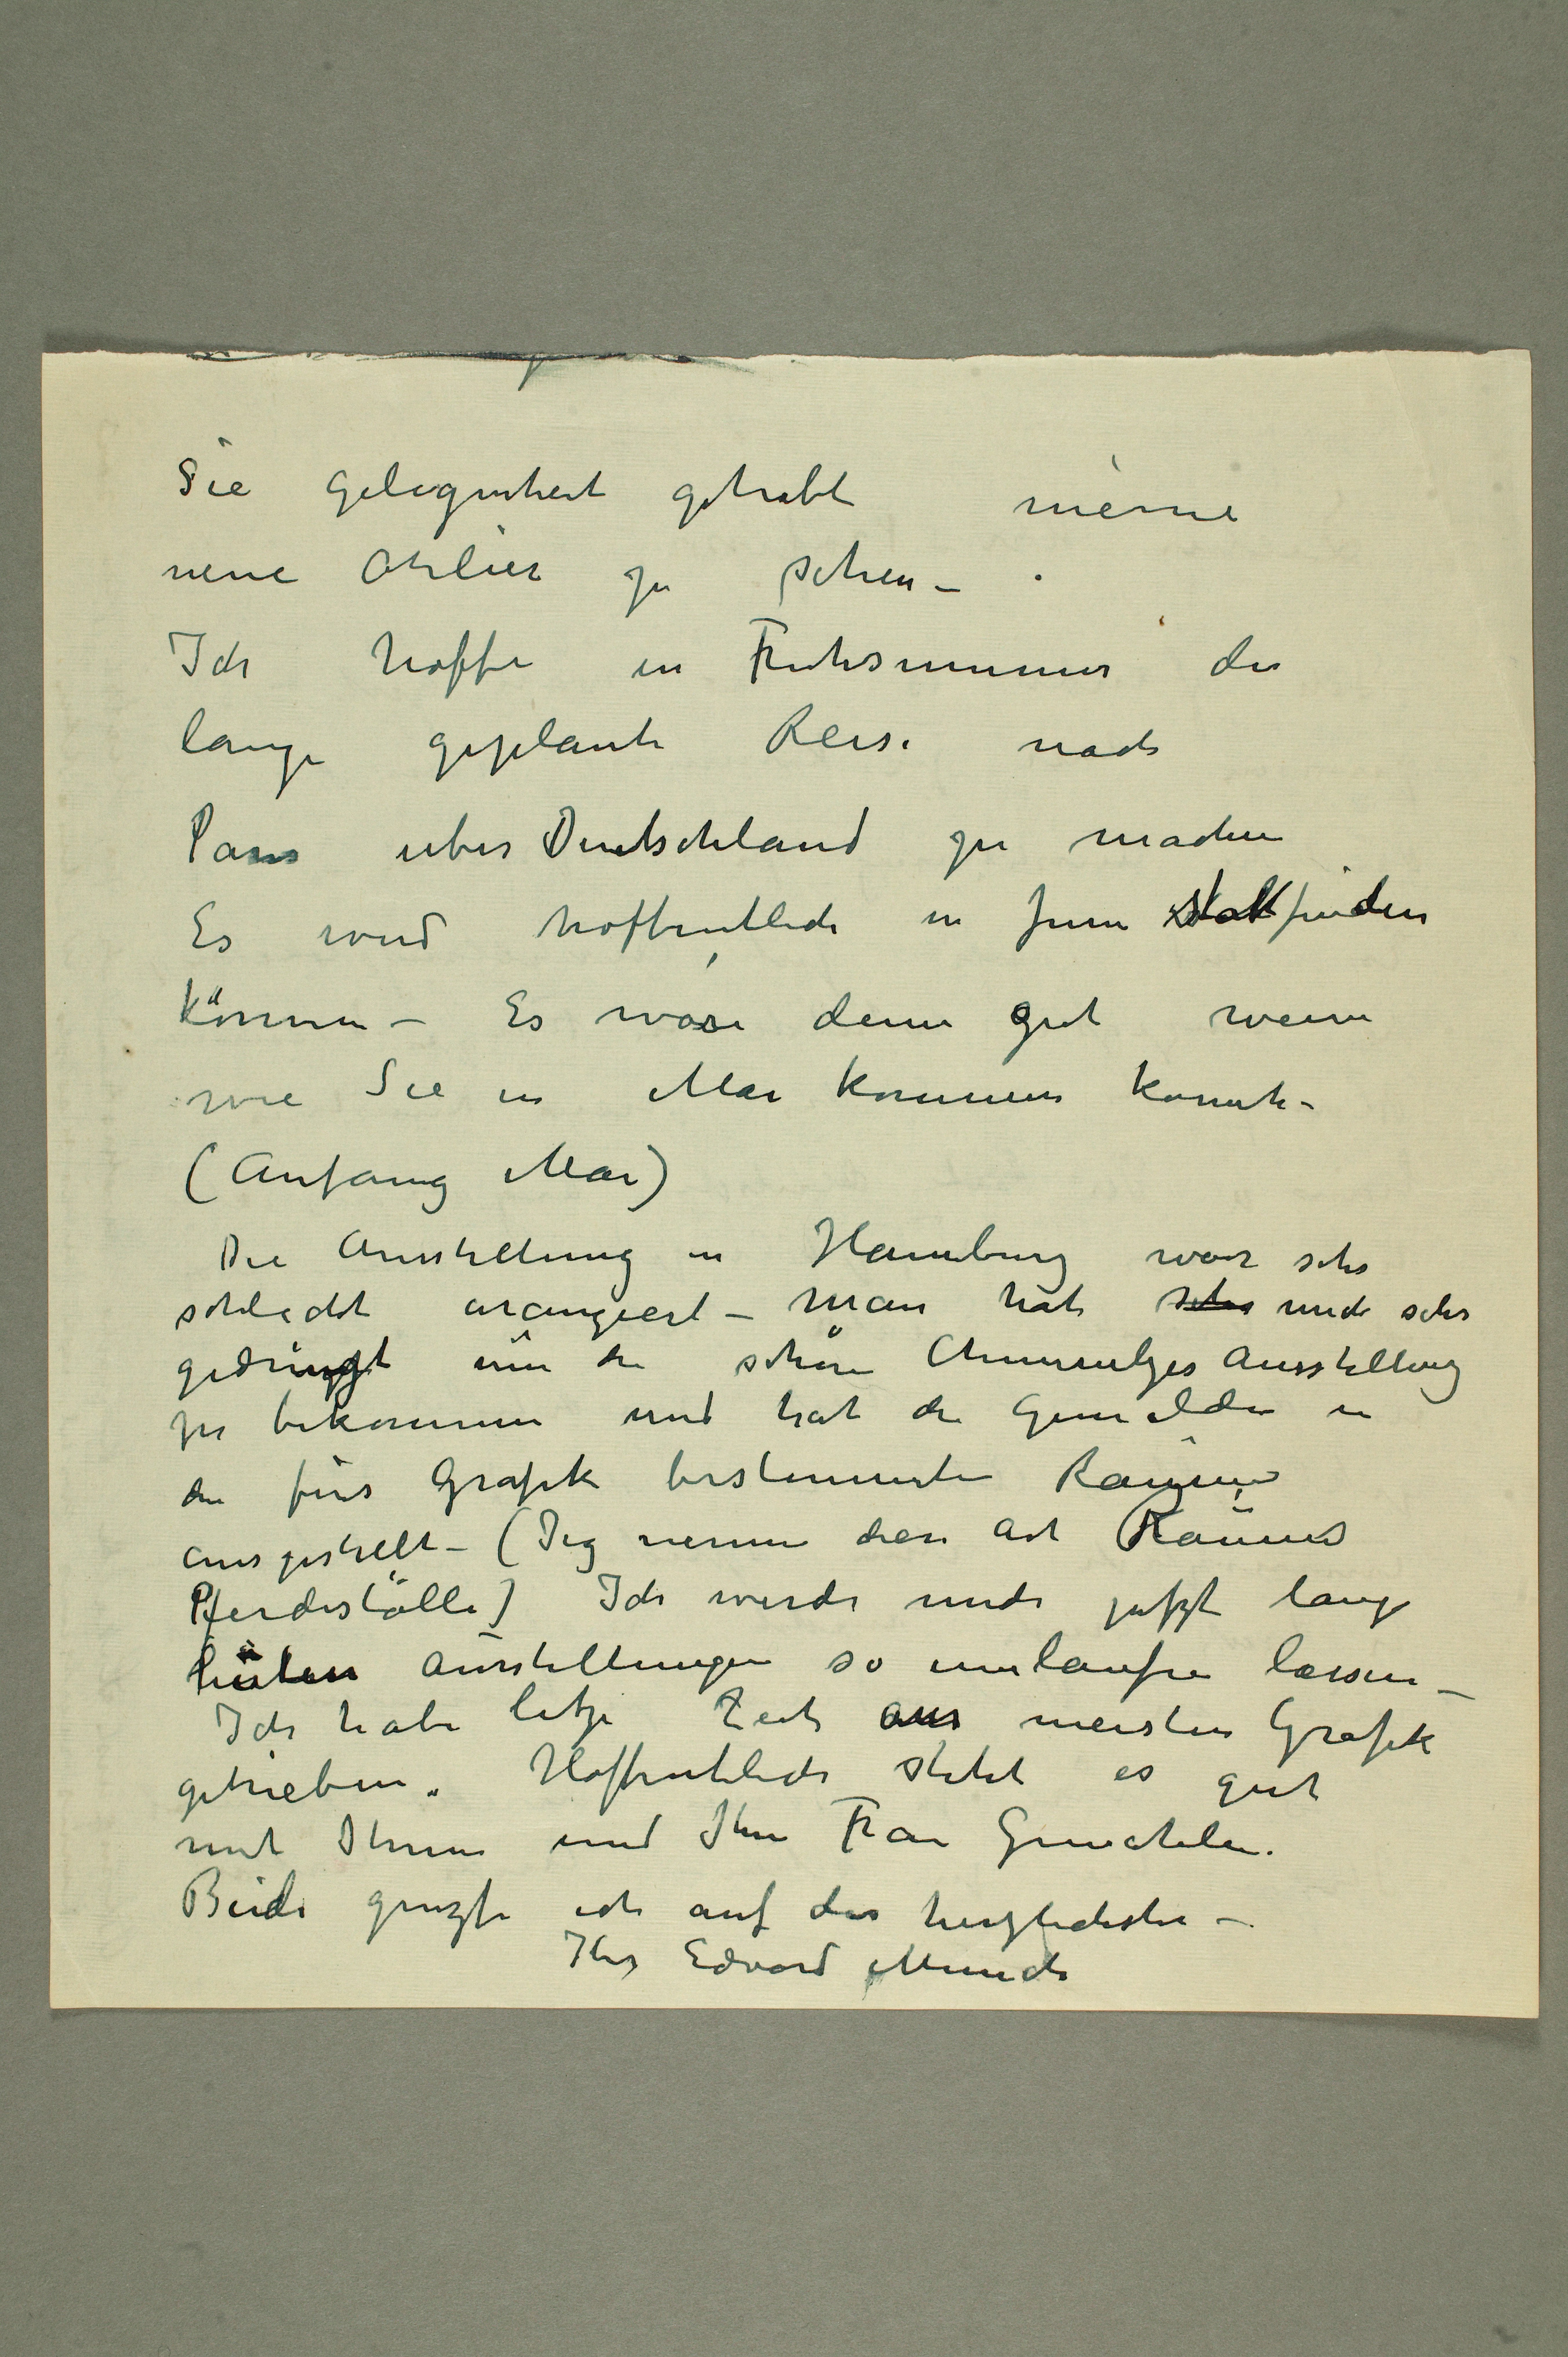 Sie Gelegenheit gehabt meine
neue Atelier zu sehen –
Ich hoffe in Fruhsommer die
lange geplante Reise nach
Paris uber Deutschland zu machen
Es wird hoffentlich in Juni statfinden
können – Es wäre denn gut wenn
wie Sie in Mai kommen konnte –
(Anfang Mai)
Die Ausstellung in Hamburg war sehr
schlecht arangiert – Man hat sehr mich sehr
gedrängt um die schöne Chemnitzer Ausstellung
zu bekommen und hat die Gemälden in
die fürs Grafik bestimmten Raüme
ausgestellt – (Jeg nenne diese Art Raüme
Pferdeställe) Ich werde mich jetzt lange
hüten Ausstellungen so umlaufen lassen –
Ich habe letze Zeit am meisten Grafik
getrieben. Hoffentlich steht es gut
mit Ihnen und Ihre Frau Gemahlin.
Beide grüsse ich auf das herzlichste –
Ihr Edvard Munch